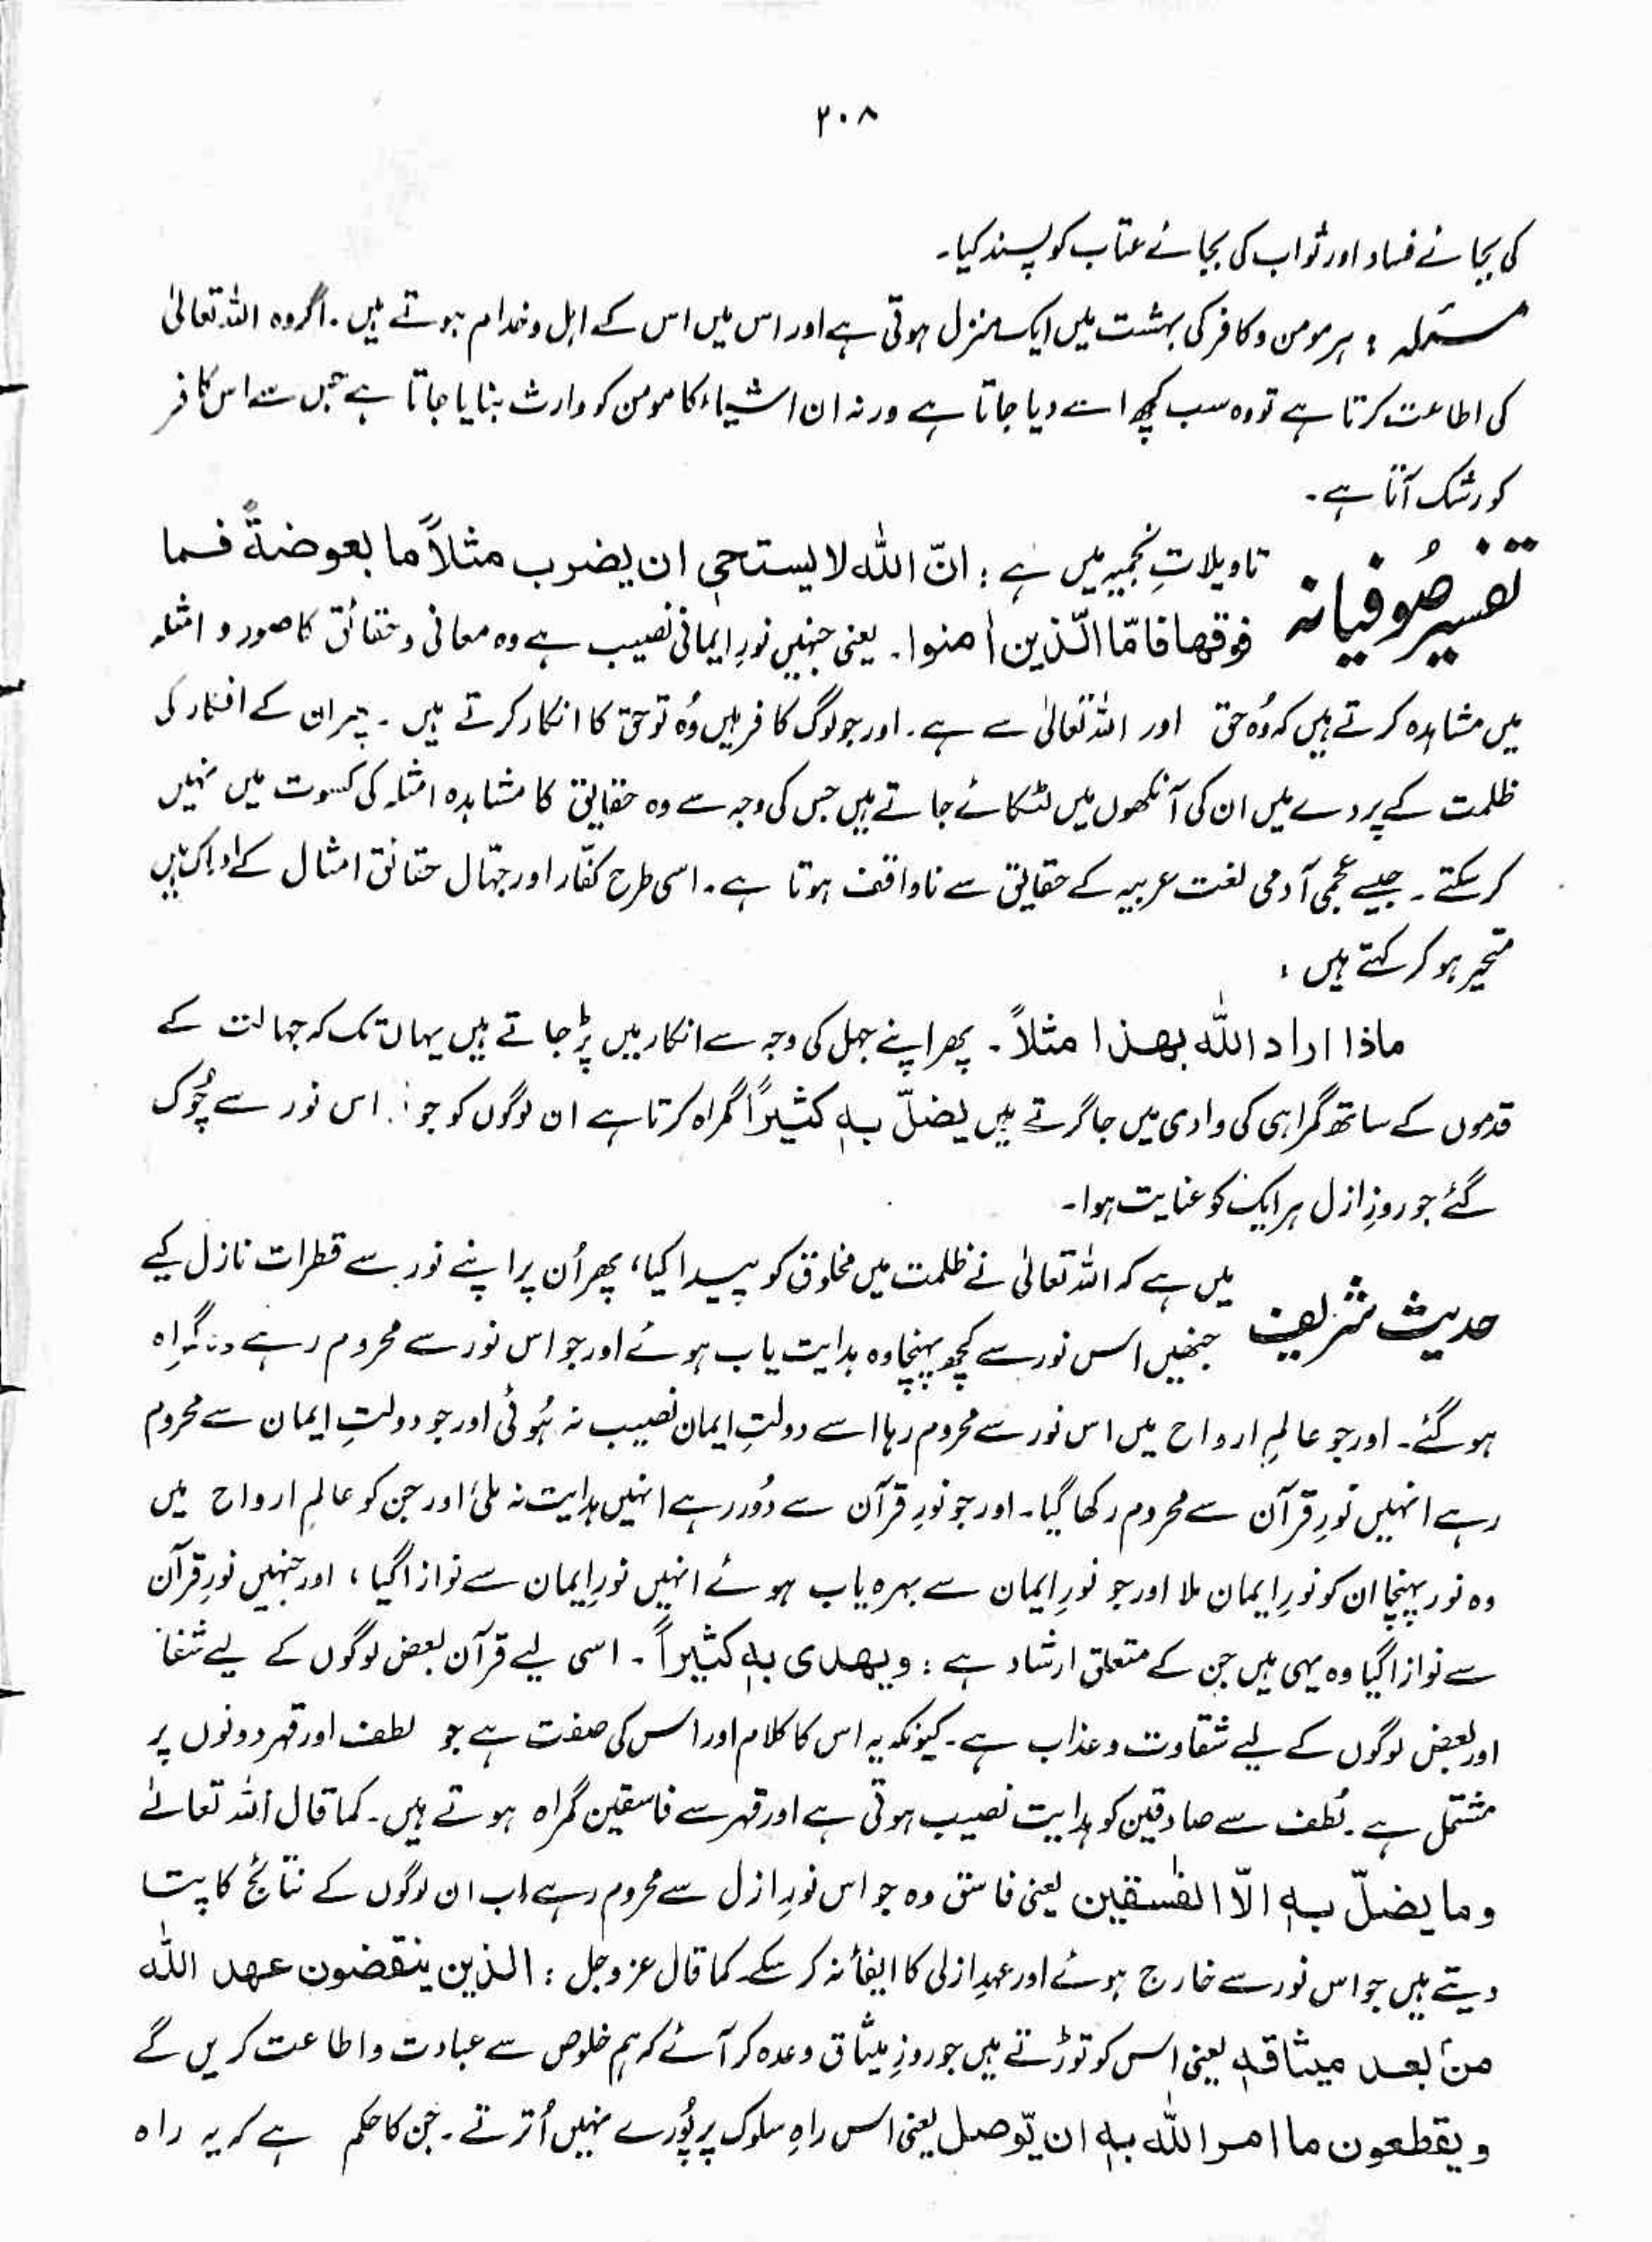 ۲۰۸
کی بجائے فساد اور ثواب کی بجائے عتاب کو پسند کیا۔
مسئلہ : ہر مومن و کافر کی بہشت میں ایک منزل ہوتی ہے اور اس میں اس کے اہل و خدام ہوتے ہیں۔ اگر وہ اللہ تعالیٰ
کی اطاعت کرتا ہے تو وہ سب کچھ اسے دیا جاتا ہے ورنہ ان اشیاء کا مومن کو وارث بنایا جاتا ہے جس سے اس کافر
کو رشک آتا ہے۔
تفسیر صُوفیانہ تاویلاتِ نجمیہ میں ہے : انّ اللّٰہ لا یستحیٖ ان یضرب مثلاً ما بعوضةً فما
فوقھا فامّا الّذین اٰمنوا۔ یعنی جنہیں نورِ ایمانی نصیب ہے وہ معانی و حقائق کا صور و امثلہ
میں مشاہدہ کرتے ہیں کہ وُہ حق اور اللہ تعالیٰ سے ہے۔ اور جو لوگ کافر ہیں وُہ تو حق کا انکار کرتے ہیں۔ پھر ان کے انکار کی
ظلمت کے پردے میں ان کی آنکھوں میں لٹکائے جاتے ہیں جس کی وجہ سے وہ حقایق کا مشاہدہ امثلہ کی کسوت میں نہیں
کر سکتے۔ جیسے عجمی آدمی لغت عربیہ کے حقایق سے ناواقف ہوتا ہے۔ اسی طرح کفّار اور جہّال حقائق امثال کے ادراک میں
متحیر ہو کر کہتے ہیں :
ماذا اراد اللّٰہ بھٰذا مثلاً۔ پھر اپنے جہل کی وجہ سے انکار میں پڑ جاتے ہیں یہاں تک کہ جہالت کے
قدموں کے ساتھ گمراہی کی وادی میں جا گرتے ہیں یضلّ بہٖ کثیراً گمراہ کرتا ہے ان لوگوں کو جو اس نور سے چُوک
گئے جو روزِ ازل ہر ایک کو عنایت ہوا۔
حدیث شریف میں ہے کہ اللہ تعالیٰ نے ظلمت میں مخلوق کو پیدا کیا، پھر اُن پر اپنے نور سے قطرات نازل کیے
جنھیں اس نور سے کچھ پہنچا وہ ہدایت یاب ہوئے اور جو اس نور سے محروم رہے وہ گمراہ
ہو گئے۔ اور جو عالمِ ارواح میں اس نور سے محروم رہا اسے دولتِ ایمان نصیب نہ ہُوئی اور جو دولتِ ایمان سے محروم
رہے انہیں نورِ قرآن سے محروم رکھا گیا۔ اور جو نورِ قرآن سے دُور رہے انہیں ہدایت نہ ملی اور جن کو عالمِ ارواح میں
وہ نور پہنچا ان کو نورِ ایمان ملا اور جو نورِ ایمان سے بہرہ یاب ہوئے انہیں نورِ ایمان سے نوازا گیا، اور جنہیں نورِ قرآن
سے نوازا گیا وہ یہی ہیں جن کے متعلق ارشاد ہے : ویھدی بہٖ کثیراً۔ اسی لیے قرآن بعض لوگوں کے لیے شفا
اور بعض لوگوں کے لیے شقاوت و عذاب ہے۔ کیونکہ یہ اس کا کلام اور اس کی صفت ہے جو لطف اور قہر دونوں پر
مشتمل ہے۔ لُطف سے صادقین کو ہدایت نصیب ہوتی ہے اور قہر سے فاسقین گمراہ ہوتے ہیں۔ کما قال اللہ تعالےٰ
وما یضلّ بہٖ الّا الفٰسقین یعنی فاسق وہ جو اس نورِ ازل سے محروم رہے اب ان لوگوں کے نتائج کا پتا
دیتے ہیں جو اس نور سے خارج ہوئے اور عہدِ ازلی کا ایفاء نہ کر سکے کما قال عزوجل : الذین ینقضون عھد اللّٰہ
من بعد میثاقہٖ یعنی اس کو توڑتے ہیں جو روزِ میثاق وعدہ کر آئے کہ ہم خلوص سے عبادت و اطاعت کریں گے
ویقطعون ما امر اللّٰہ بہٖ ان یّوصل یعنی اس راہِ سلوک پر پُورے نہیں اُترتے۔ جن کا حکم ہے کہ یہ راہ